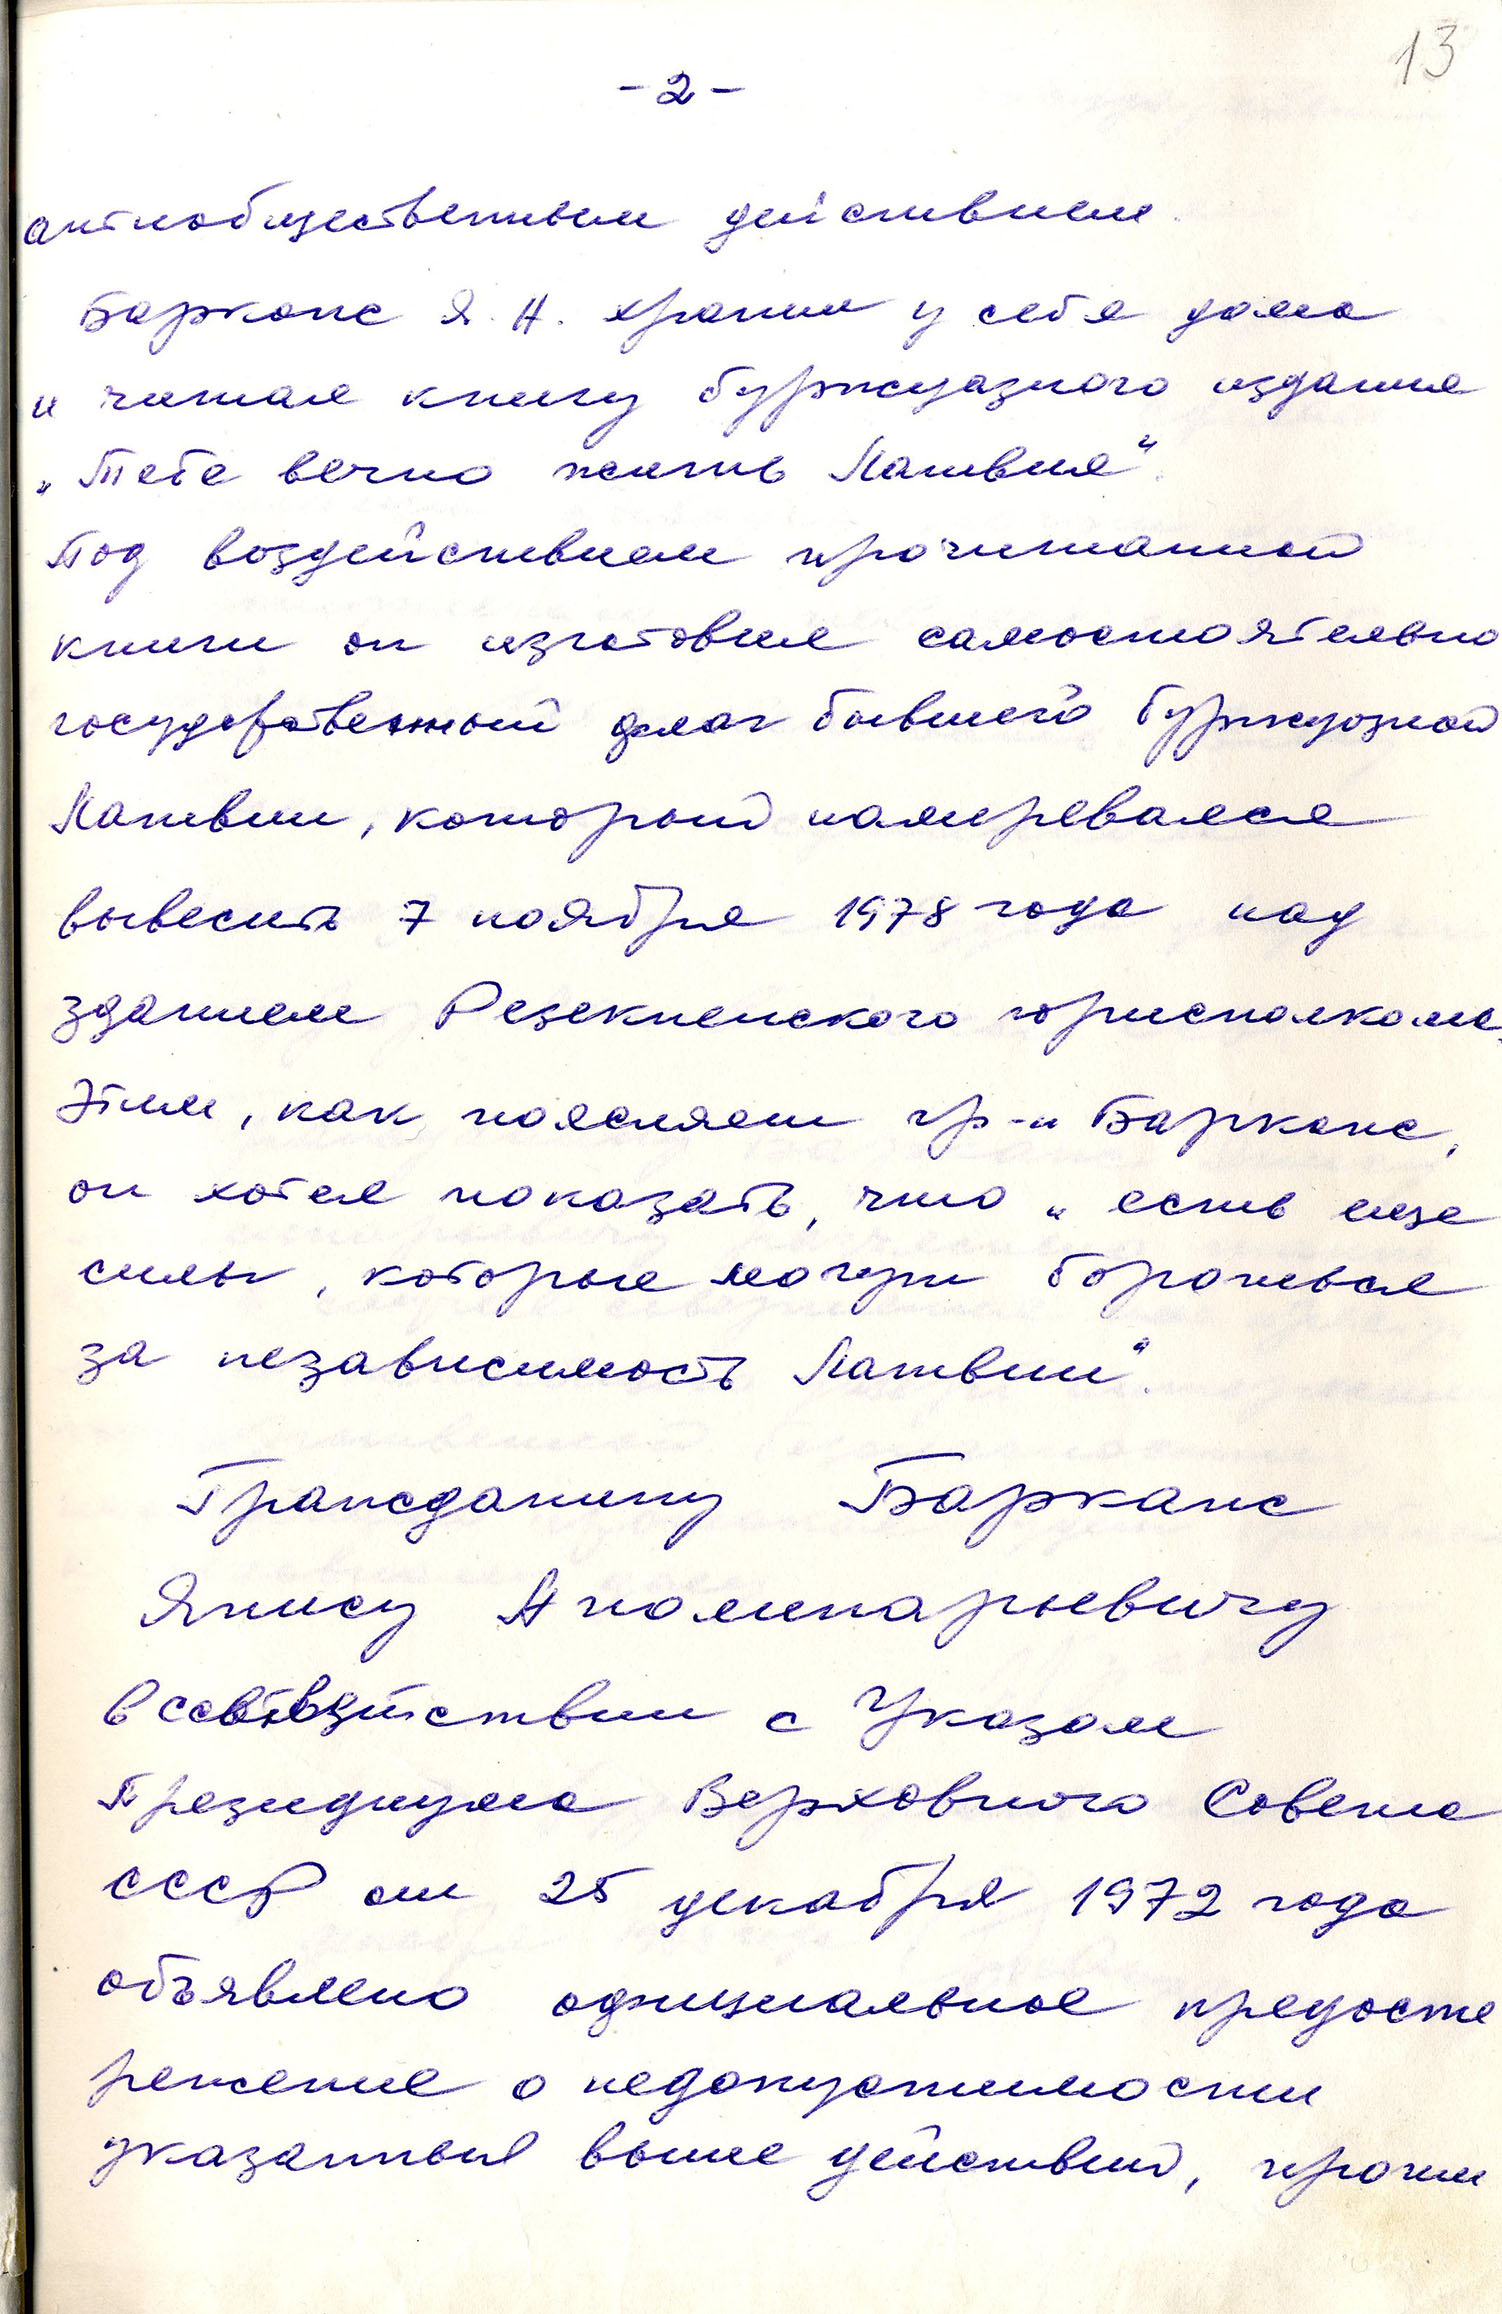 13
- 2 -
антиобщественным действием.
Барканс Я. А. хранил у себя дома
и читал книгу буржуазного издания
„Тебе вечно жить Латвия“.
Под воздействием прочитанной
книги он изготовил самостоятельно
государственный флаг бывшей буржуазной
Латвии, который намеревался
вывесить 7 ноября 1978 года над
зданием Резекненского горисполкома.
Этим, как поясняет гр-н Барканс,
он хотел показать, что „есть еще
силы, которые могут бороться
за независимость Латвии“.
Гражданину Барканс
Янису Аполинарьевичу
в соответствии с Указом
Президиума Верховного Совета
СССР от 25 декабря 1972 года
объявлено официальное предосте
режение о недопустимости
указанных выше действий, проти